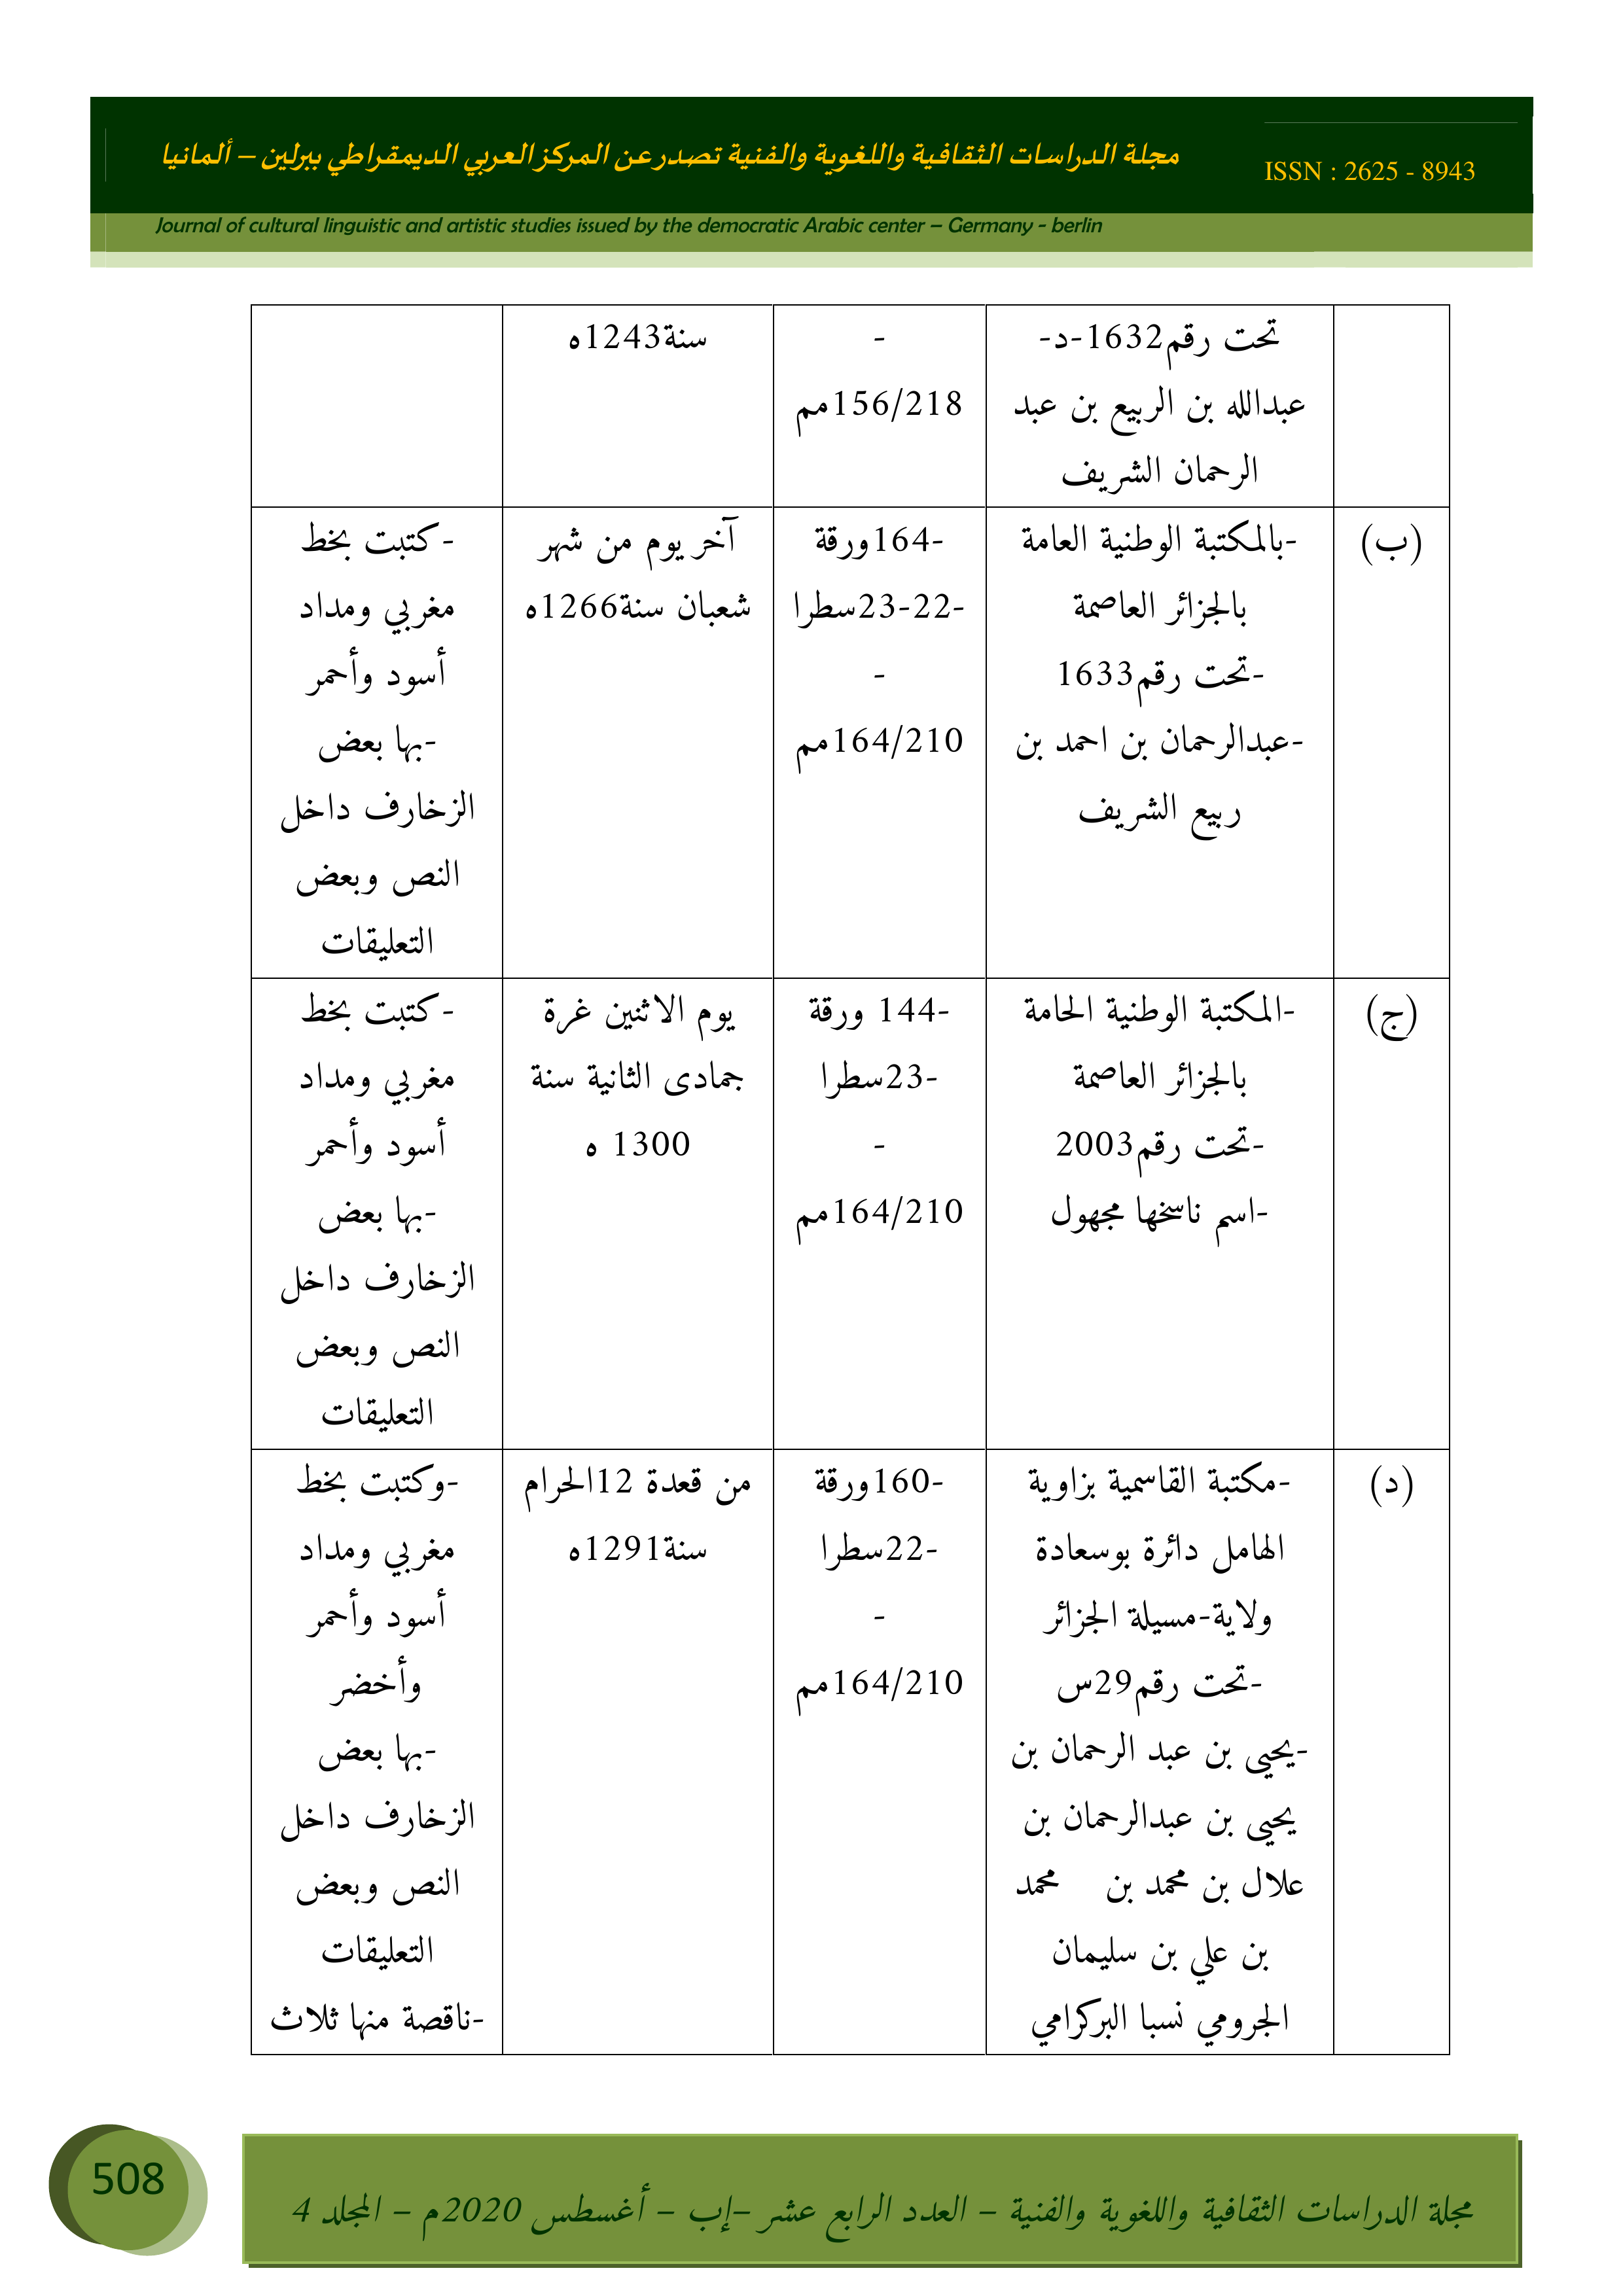 مجلة الدراسات الثقافية واللغوية والفنية تصدر عن المركز العربي الديمقراطي ببرلين – ألمانيا
ISSN : 2625 - 8943
Journal of cultural linguistic and artistic studies issued by the democratic Arabic center – Germany - berlin
تحت رقم1632-د-
عبدالله بن الربيع بن عبد
الرحمان الشريف
-
156/218مم
سنة1243ه
(ب)
-بالمكتبة الوطنية العامة
بالجزائر العاصمة
-تحت رقم1633
-عبدالرحمان بن احمد بن
ربيع الشريف
-164ورقة
-22-23سطرا
-
164/210مم
آخر يوم من شهر
شعبان سنة1266ه
-كتبت بخط
مغربي ومداد
أسود وأحمر
-بها بعض
الزخارف داخل
النص وبعض
التعليقات
(ج)
-المكتبة الوطنية الحامة
بالجزائر العاصمة
-تحت رقم2003
-اسم ناسخها مجهول
-144 ورقة
-23سطرا
-
164/210مم
يوم الاثنين غرة
جمادى الثانية سنة
1300 ه
-كتبت بخط
مغربي ومداد
أسود وأحمر
-بها بعض
الزخارف داخل
النص وبعض
التعليقات
(د)
-مكتبة القاسمية بزاوية
الهامل دائرة بوسعادة
ولاية-مسيلة الجزائر
-تحت رقم29س
-يحيى بن عبد الرحمان بن
يحيى بن عبدالرحمان بن
علال بن محمد بن محمد
بن علي بن سليمان
الجرومي نسبا البركرامي
-160ورقة
-22سطرا
-
164/210مم
من قعدة 12الحرام
سنة1291ه
-وكتبت بخط
مغربي ومداد
أسود وأحمر
وأخضر
-بها بعض
الزخارف داخل
النص وبعض
التعليقات
-ناقصة منها ثلاث
508
مجلة الدراسات الثقافية واللغوية والفنية – العدد الرابع عشر –إب – أغسطس 2020م – المجلد 4